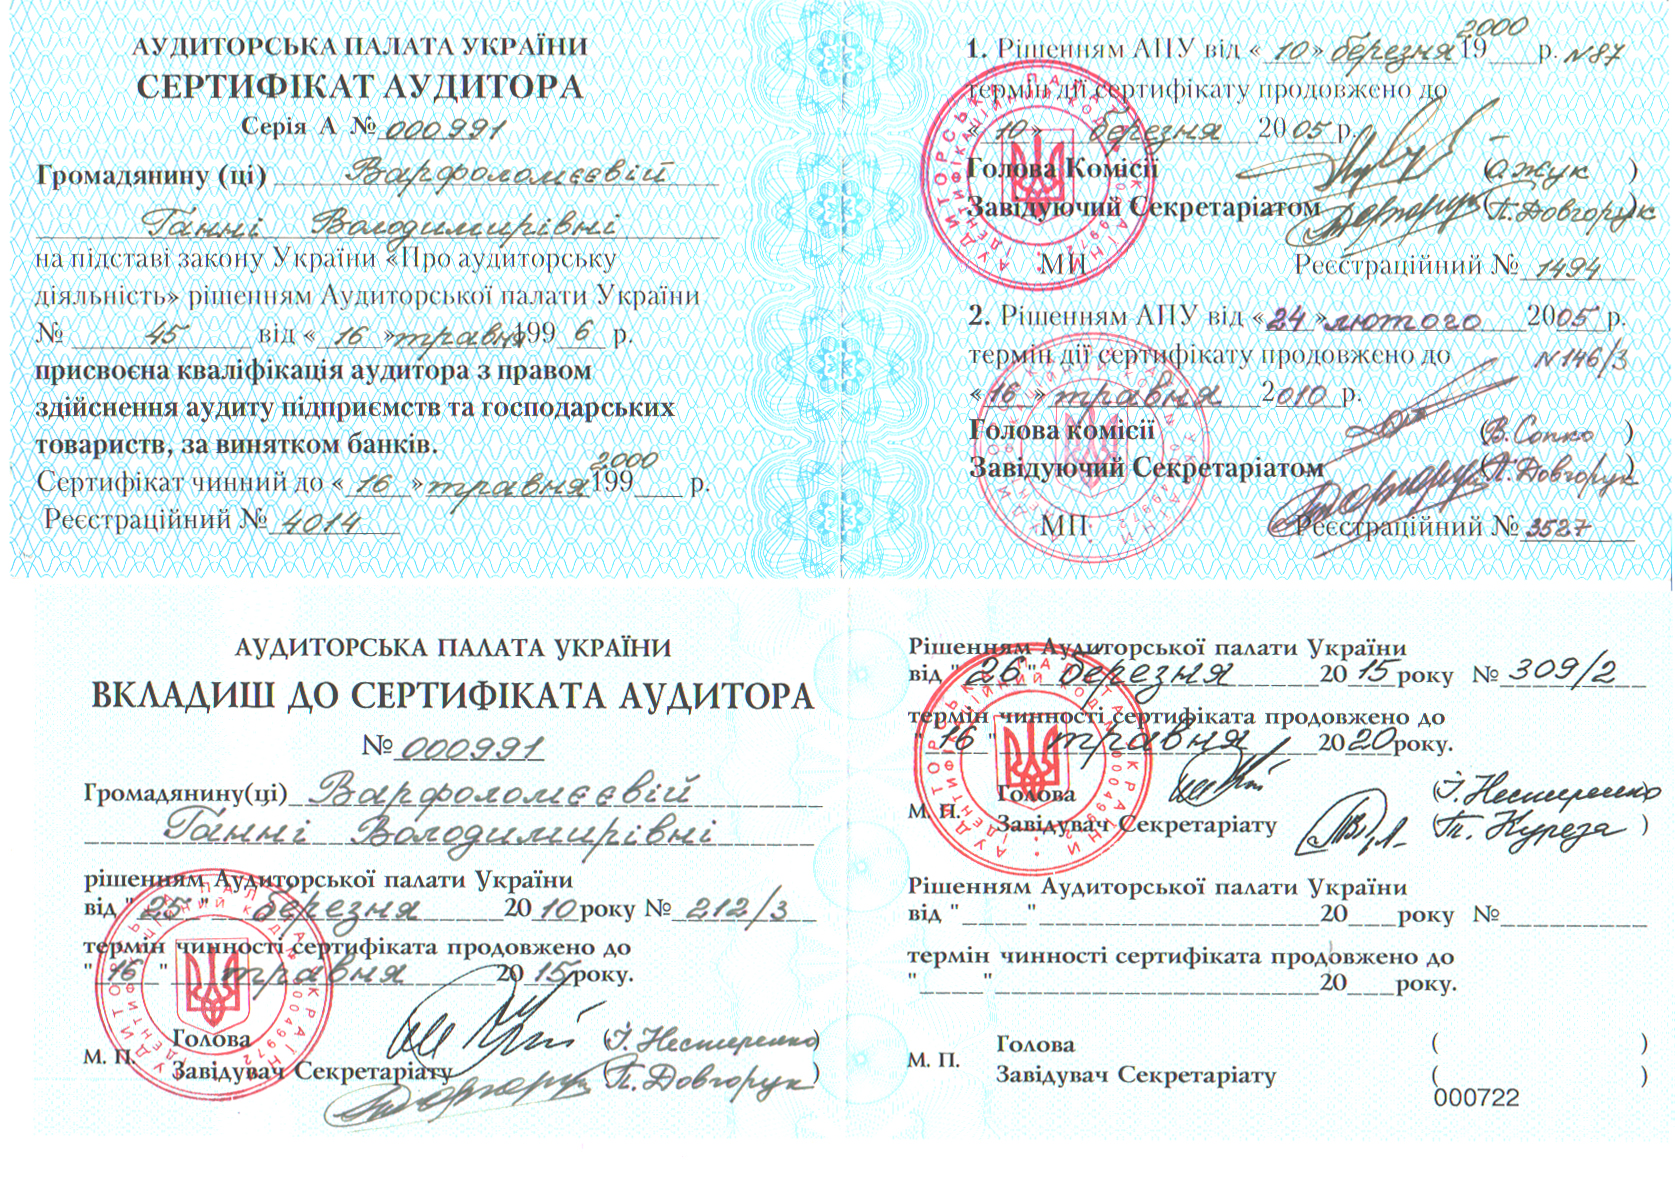 АУДИТОРСЬКА ПАЛАТА УКРАЇНИ
СЕРТИФІКАТ АУДИТОРА
Серія А № 000991
Громадянину (ці) Варфоломєєвій
Ганні Володимирівні
на підставі закону України «Про аудиторську
діяльність» рішенням Аудиторської палати України
№ 45 від « 16 » травня 199 6 р.
присвоєна кваліфікація аудитора з правом
здійснення аудиту підприємств та господарських
товариств, за винятком банків.
2000
Сертифікат чинний до « 16 » травня 199 р.
Реєстраційний № 4014
2000
1. Рішенням АПУ від « 10 » березня 19 р. N87
термін дії сертифікату продовжено до
« 10 » березня 20 05 р.
Голова Комісії (О.Жук)
Завідуючий Секретаріатом (П.Довгорук)
МП Реєстраційний № 1494
2. Рішенням АПУ від « 24 » лютого 2005 р.
термін дії сертифікату продовжено до N146/3
« 16 » травня 2010 р.
Голова комісії (В.Сопко)
Завідуючий Секретаріатом (П.Довгорук)
МП Реєстраційний № 3527
АУДИТОРСЬКА ПАЛАТА УКРАЇНИ
ВКЛАДИШ ДО СЕРТИФІКАТА АУДИТОРА
№ 000991
Громадянину(ці) Варфоломєєвій
Ганні Володимирівні
рішенням Аудиторської палати України
від " 25 " березня 20 10 року № 212/3
термін чинності сертифіката продовжено до
" 16 " травня 20 15 року.
Голова (І.Нестеренко)
М. П.
Завідувач Секретаріату (П.Довгорук)
Рішенням Аудиторської палати України
від " 26 " березня 20 15 року № 309/2
термін чинності сертифіката продовжено до
" 16 " травня 20 20 року.
Голова (І.Нестеренко)
М. П.
Завідувач Секретаріату (Т. Куреза)
Рішенням Аудиторської палати України
від " " 20 року №
термін чинності сертифіката продовжено до
" " 20 року.
Голова ( )
М. П.
Завідувач Секретаріату ( )
000722